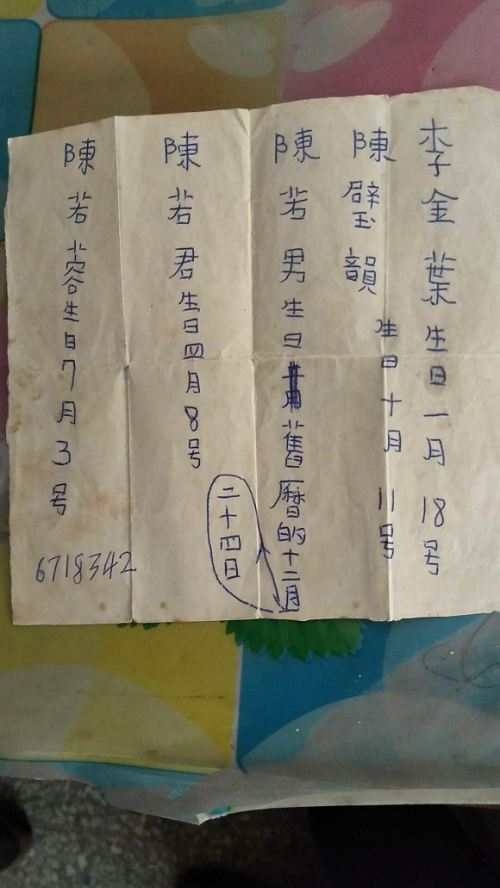 李金葉生日一月18号
陳璧韻生日十月11号
陳若男生日舊曆的十二月二十四日
陳若君生日四月8号
陳若蓉生日7月3号
6718342